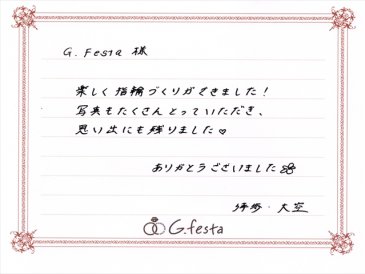 G. Festa 様
楽しく指輪づくりができました!
写真もたくさんとっていただき、
思い出にも残りました♡
ありがとうございました
・大空
G.festa